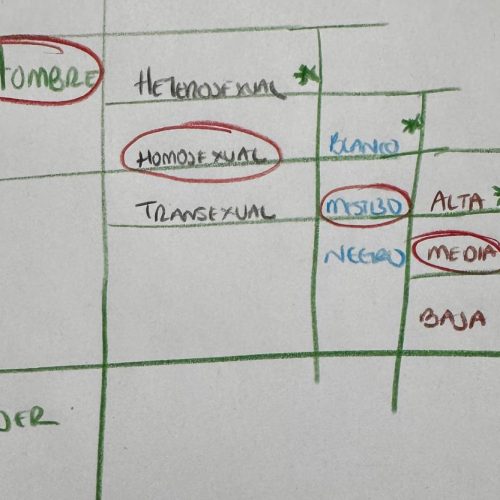 HOMBRE
HETEROSEXUAL
HOMOSEXUAL
TRANSEXUAL
BLANCO
MESTIZO
NEGRO
ALTA
MEDIA
BAJA